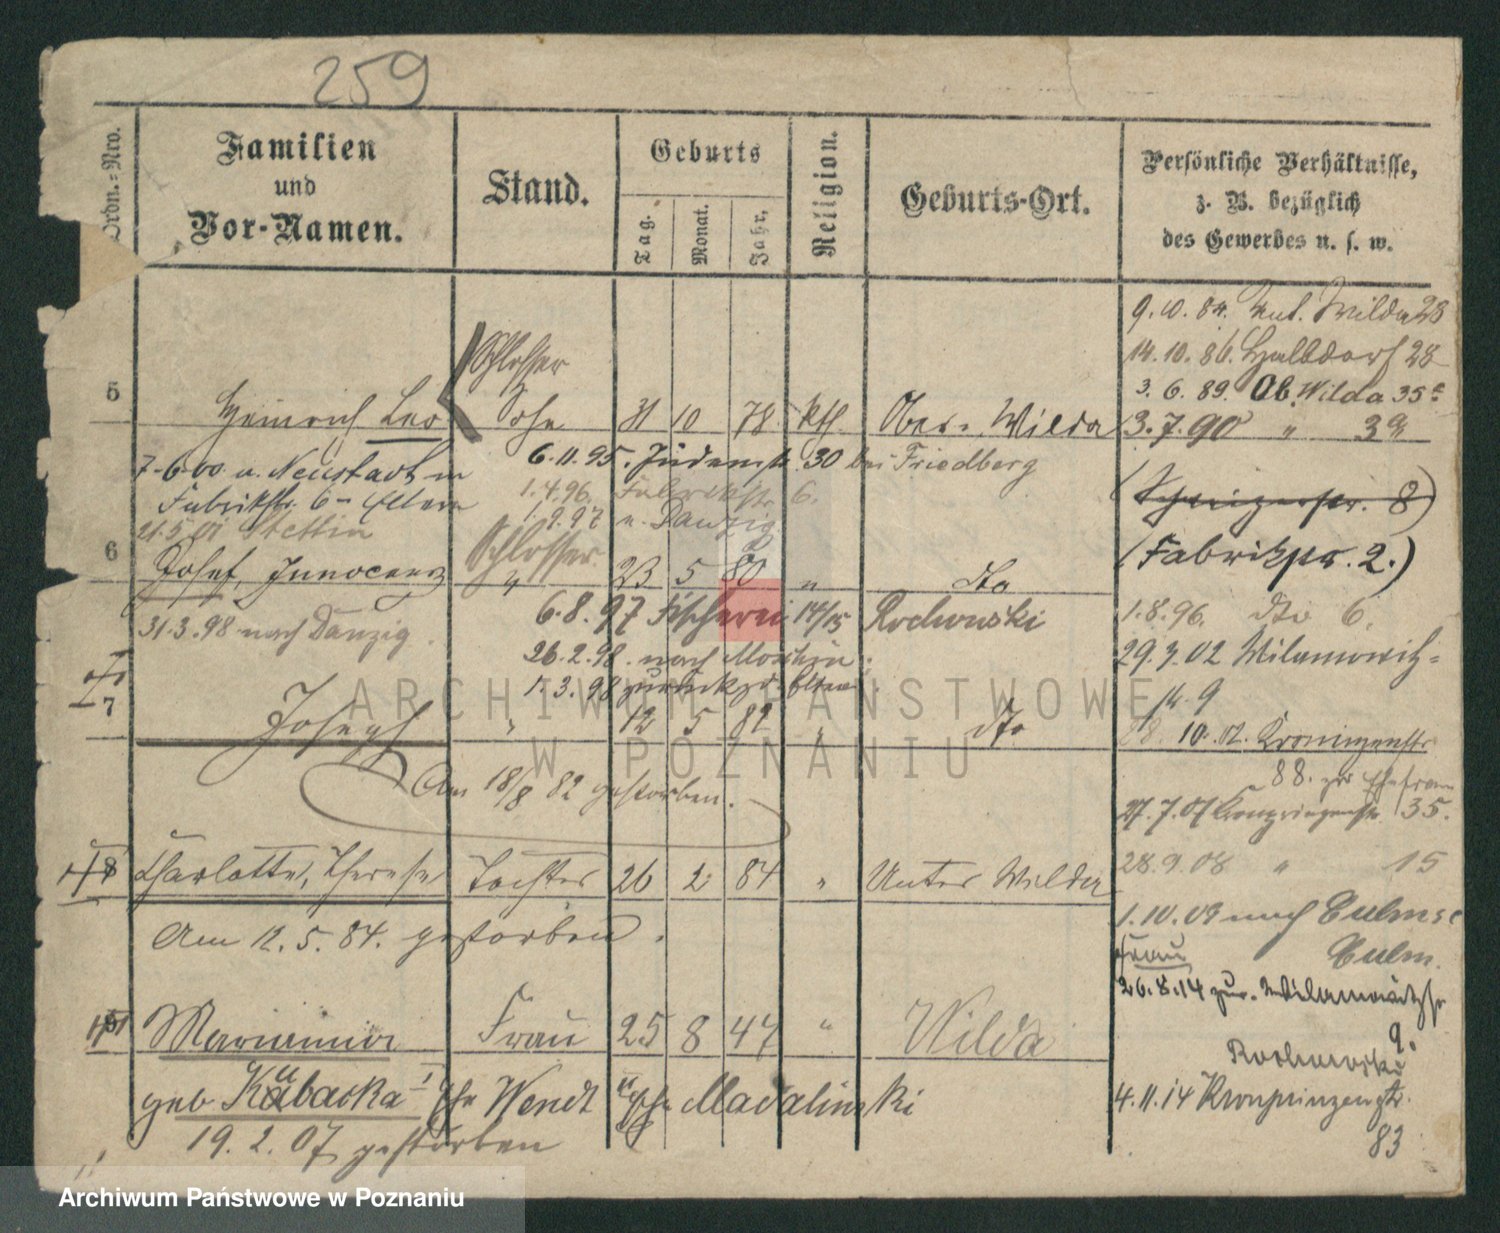 259
Ordn.-Nro.
Familien
und
Vor-Namen.
Stand.
Geburts
Tag.
Monat.
Jahr,
Religion.
Geburts-Ort.
Persönliche Verhältnisse,
z. B. bezüglich
des Gewerbes u. s. w.
9.10.84. Unt. Wilda 28
14.10.86. Halbdorf 28
3.6.89. Ob. Wilda 35
3.7.90 " 3
Schlosser
5 Heinrich Leo Sohn 31 10 78 kth. Ober-Wilda
7.6.00 n. Neustadt
Fabrikstr. 6 Eltern
21.5.01 Stettin
6.11.95. Judenstr. 30 bei Friedberg
1.4.96. Fabrikstr. 6.
1.9.97 n. Danzig
8)
(Fabrikstr. 2.)
Schlosser
6 Josef, Innocenz " 23 5 80 " dto
31.3.98 nach Danzig.
6.8.97 Fischerei 14/15 Rochowski
26.2.98. nach Moschin.
1.3.98 zurück zd. Eltern
1.8.96. dto 6.
29.3.02 Wilamowitz-
str. 9
10.02. Kronprinzenstr.
88. zur Ehefrau
27.7.07 Kronprinzenstr. 35.
28.9.08 " 15
1.10.09 nach Culmsee
Culm.
Frau
26.8.14 zur. Wilamowitzstr
9.
Rochowski
4.11.14 Kronprinzenstr.
83
7 Joseph " 12 5 82 " dto
Am 18/8 82 gestorben.
8 Charlotte, Therese Tochter 26 2 84 " Unter Wilda
Am 12.5.84. gestorben.
Marianna Frau 25 8 47 " Wilda
geb Kubacka I Ehe Wendt II Ehe Madalinski
19.2.07 gestorben
ARCHIWUM PAŃSTWOWE
W POZNANIU
Archiwum Państwowe w Poznaniu